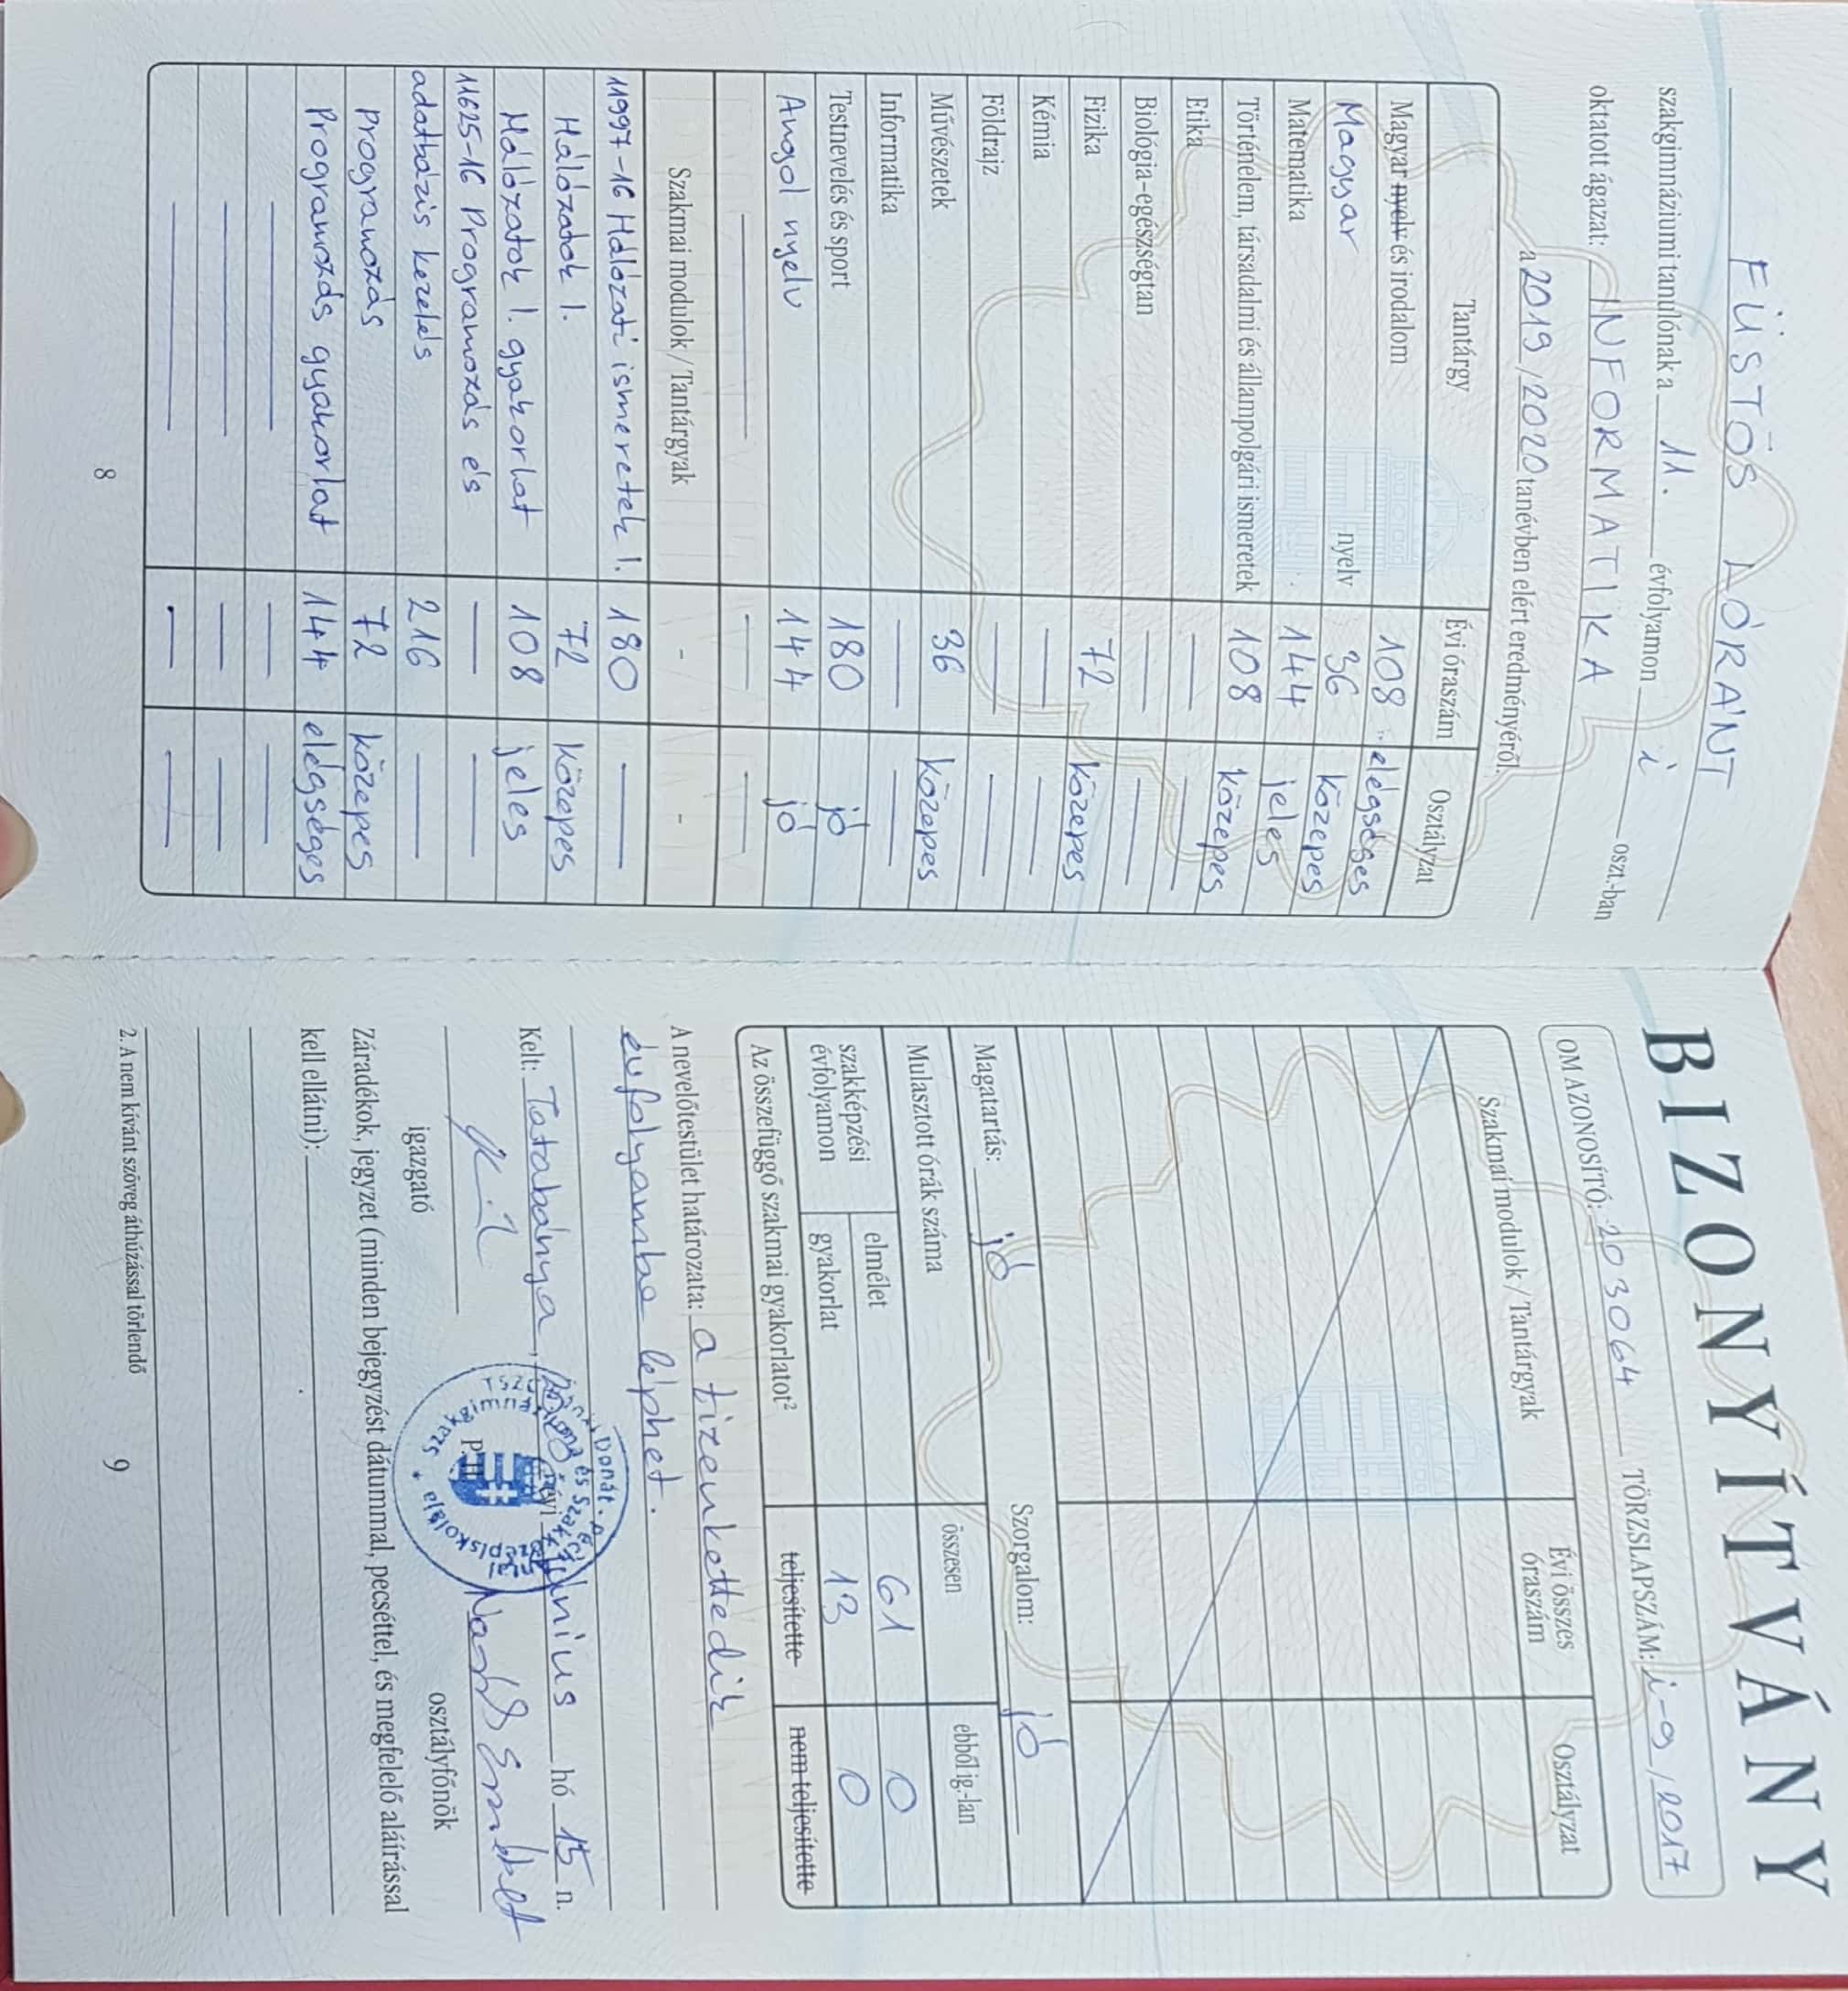 FÜSTÖS LÓRÁNT
szakgimnáziumi tanulónak a 11. évfolyamon i oszt.-ban
oktatott ágazat: INFORMATIKA
a 2019/2020 tanévben elért eredményéről.
Tantárgy Évi óraszám Osztályzat
Magyar nyelv és irodalom 108 elégséges
Magyar nyelv 36 közepes
Matematika 144 jeles
Történelem, társadalmi és állampolgári ismeretek 108 közepes
Etika
Biológia-egészségtan
Fizika 72 közepes
Kémia
Földrajz
Művészetek 36 közepes
Informatika
Testnevelés és sport 180 jó
Angol nyelv 144 jó
Szakmai modulok / Tantárgyak - -
11997-16 Hálózati ismeretek I. 180
Hálózatok I. 72 közepes
Hálózatok I. gyakorlat 108 jeles
11625-16 Programozás és
adatbázis kezelés 216
Programozás 72 közepes
Programozás gyakorlat 144 elégséges
8
BIZONYÍTVÁNY
OM AZONOSÍTÓ: 203064 TÖRZSLAPSZÁM: i-9/2017
Szakmai modulok / Tantárgyak Évi összes óraszám Osztályzat
Magatartás: jó Szorgalom: jó
Mulasztott órák száma összesen ebből ig.-lan
szakképzési évfolyamon elmélet 61 0
gyakorlat 13 0
Az összefüggő szakmai gyakorlatot² teljesítette nem teljesítette
A nevelőtestület határozata: a tizenkettedik
évfolyamba léphet.
Kelt: Tatabánya, 2020 évi június hó 15 n.
P. H.
igazgató osztályfőnök
Záradékok, jegyzet (minden bejegyzést dátummal, pecséttel, és megfelelő aláírással
kell ellátni):
2. A nem kívánt szöveg áthúzással törlendő
9